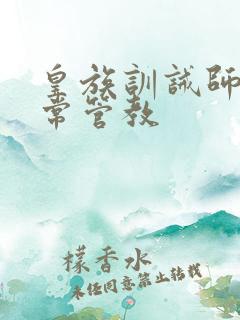 皇族訓誡師
常管教
檬香水
未经同意禁止转载